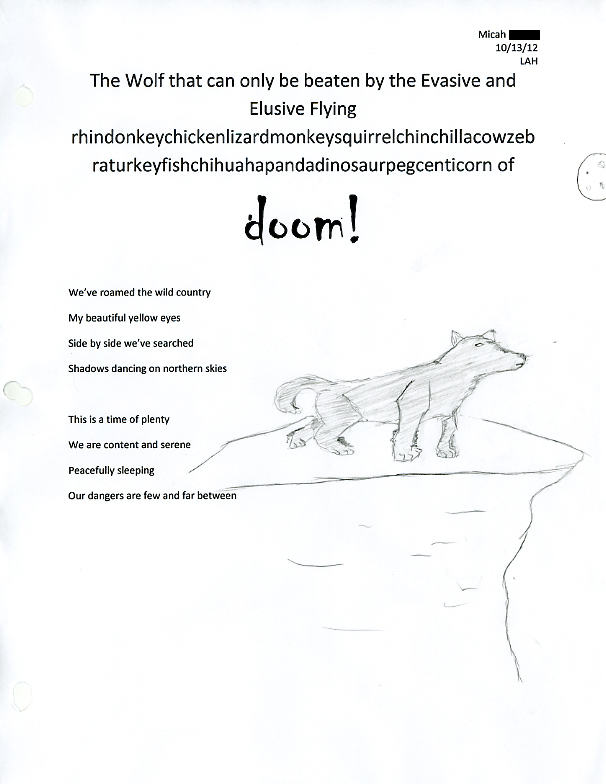 Micah
10/13/12
LAH
The Wolf that can only be beaten by the Evasive and
Elusive Flying
rhindonkeychickenlizardmonkeysquirrelchinchillacowzeb
raturkeyfishchihuahapandadinosaurpegcenticorn of
doom!
We've roamed the wild country
My beautiful yellow eyes
Side by side we've searched
Shadows dancing on northern skies
This is a time of plenty
We are content and serene
Peacefully sleeping
Our dangers are few and far between